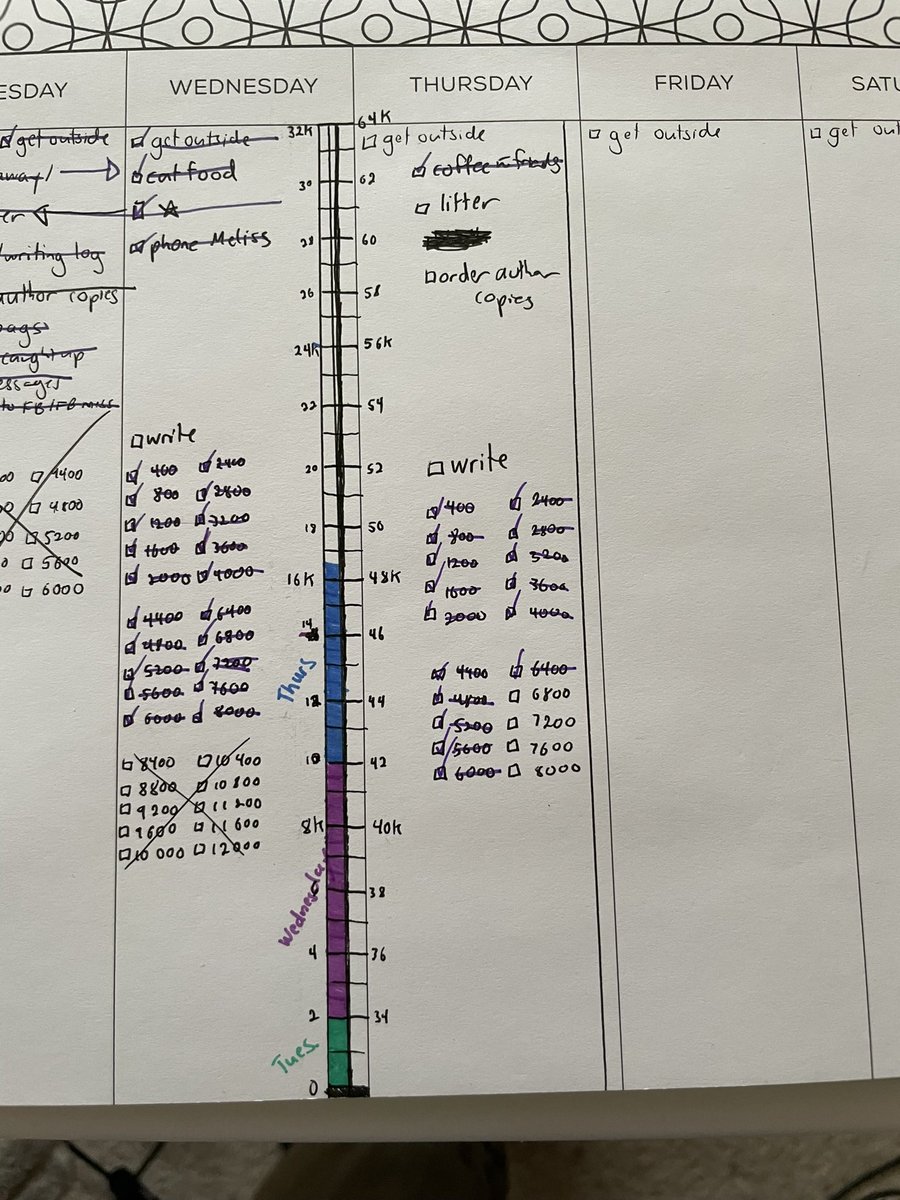 ESDAY
get outside
away/
er
writing log
author copies
bags
caught up
essages
to FB/FB
00 4400
4800
00 5200
0 5600
00 6000
WEDNESDAY
get outside
eat food
phone Meliss
write
400 2400
800 2800
1200 3200
1600 3600
2000 4000
4400 6400
4800 6800
5200 7200
5600 7600
6000 8000
8400 10 400
8800 10 800
9200 11 200
9600 11 600
10 000 12000
64K
32K
30 62
28 60
26 58
24K 56K
22 54
20 52
18 50
16K 48K
14 46
12 44
10 42
8K 40K
6 38
4 36
2 34
0
Thurs
Wednesday
Tues
THURSDAY
get outside
coffee
litter
order author
copies
write
400 2400
800 2800
1200 3200
1600 3600
2000 4000
4400 6400
4800 6800
5200 7200
5600 7600
6000 8000
FRIDAY
get outside
SATU
get out